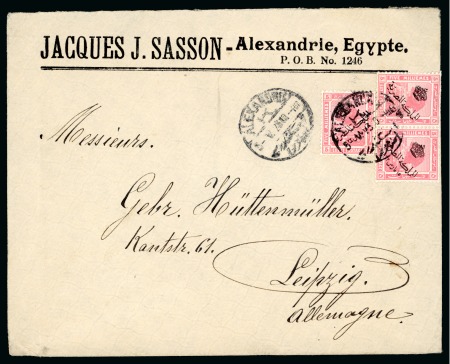 JACQUES J. SASSON - Alexandrie, Egypte.
P. O. B. No. 1246
FIVE MILLIEMES
ALEXANDRIA
Messieurs.
Gebr. Hüttenmüller.
Kantstr. 61.
Leipzig.
Allemagne.